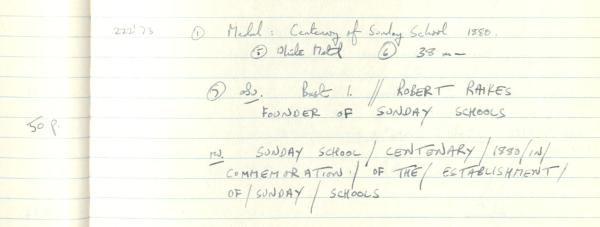 222'73 ① Medal: Centenary of Sunday School 1880.
⑤ White Metal ⑥ 38 mm
⑦ obv. Bust l. // ROBERT RAIKES
FOUNDER OF SUNDAY SCHOOLS
50 p.
rv. SUNDAY SCHOOL / CENTENARY / 1880 / IN /
COMMEMORATION / OF THE / ESTABLISHMENT /
OF / SUNDAY / SCHOOLS